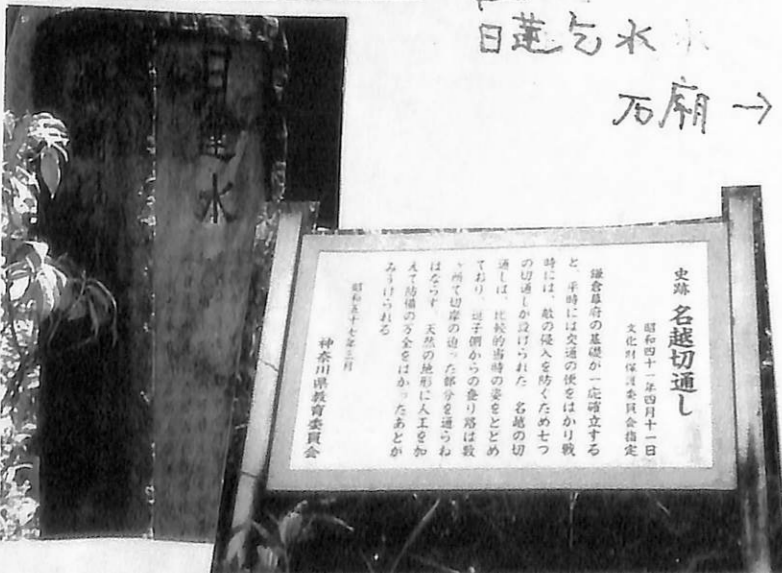 日蓮乞水
石廟→
日蓮水
史跡 名越切通し
昭和四十一年四月十一日
文化財保護委員会指定
鎌倉幕府の基礎が一応確立する
と、平時には交通の便をはかり戦
時には、敵の侵入を防ぐため七つ
の切通しが設けられた 名越の切
通しは、比較的当時の姿をとどめ
ており、逗子側からの登り路は数
ヶ所で切岸の迫った部分を通らね
ばならず、天然の地形に人工を加
えて防備の万全をはかったあとが
みうけられる
昭和五十七年三月
神奈川県教育委員会